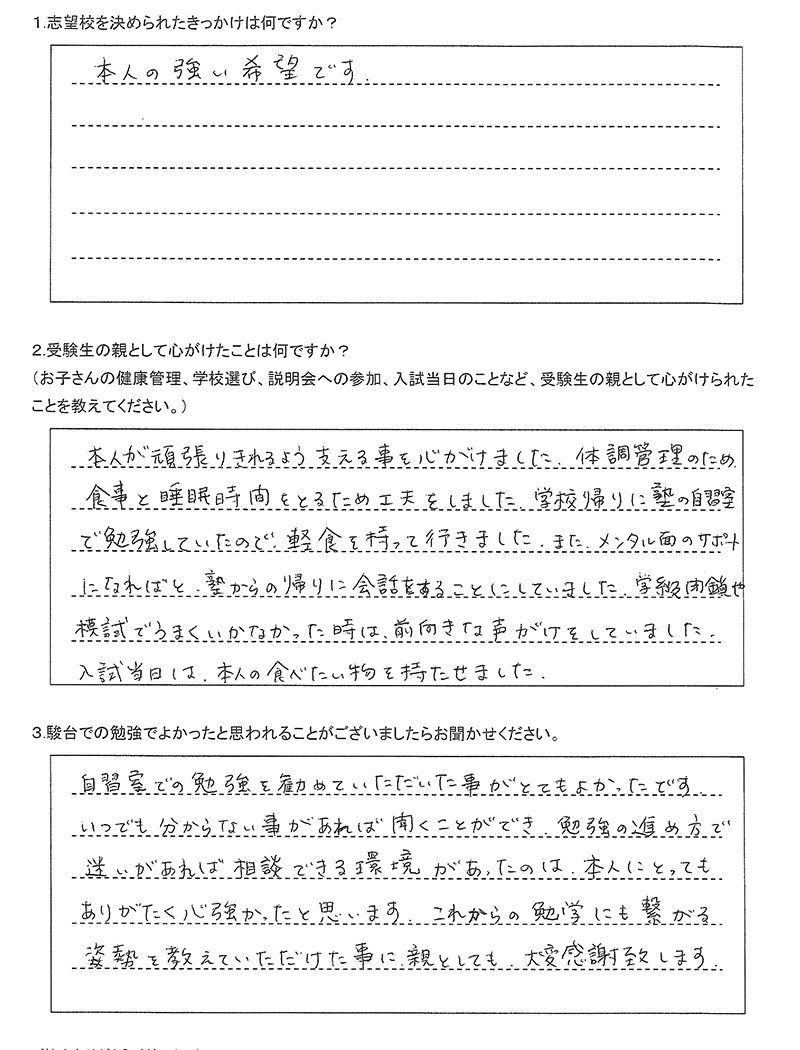 1.志望校を決められたきっかけは何ですか？
本人の強い希望です.
2.受験生の親として心がけたことは何ですか？
（お子さんの健康管理、学校選び、説明会への参加、入試当日のことなど、受験生の親として心がけられた
ことを教えてください。）
本人が頑張りきれるよう支える事を心がけました. 体調管理のため
食事と睡眠時間をとるため工夫をしました. 学校帰りに塾の自習室
で勉強していたので、軽食を持って行きました. また、メンタル面のサポート
になればと、塾からの帰りに会話をすることにしていました. 学級閉鎖や
模試でうまくいかなかった時は、前向きな声がけをしていました.
入試当日は、本人の食べたい物を持たせました.
3.駿台での勉強でよかったと思われることがございましたらお聞かせください。
自習室での勉強を勧めていただいた事がとてもよかったです.
いつでも分からない事があれば聞くことができ、勉強の進め方で
迷いがあれば相談できる環境があったのは、本人にとっても
ありがたく心強かったと思います. これからの勉学にも繋がる
姿勢を教えていただけた事に、親としても、大変感謝致します.